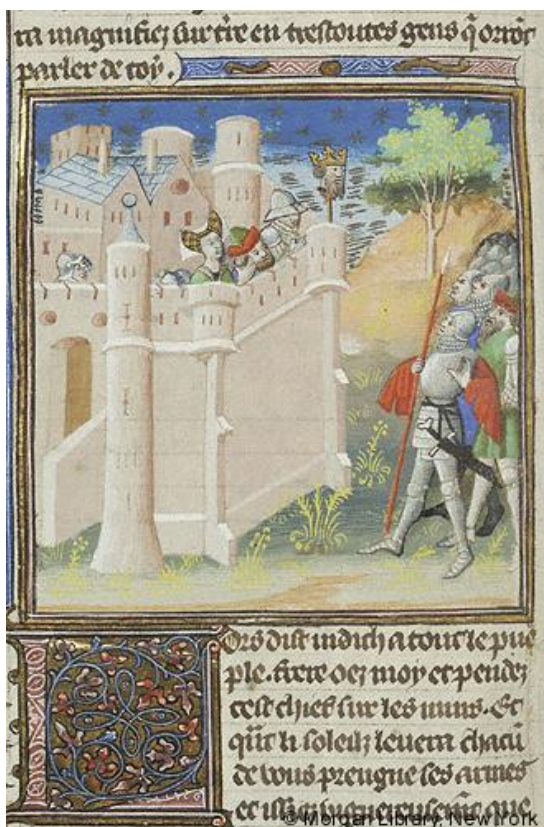 ra magnifiez sur t're en trestoutes gens q̃ orrõt
parler de toy.
Ors dist iudich a tout le pue
ple. frere oez moy et pendez
cest chief sur les murs. Et
qũt li soleilz levera chacũ
de vous preugne ses armes
et que
© Morgan Library, New York